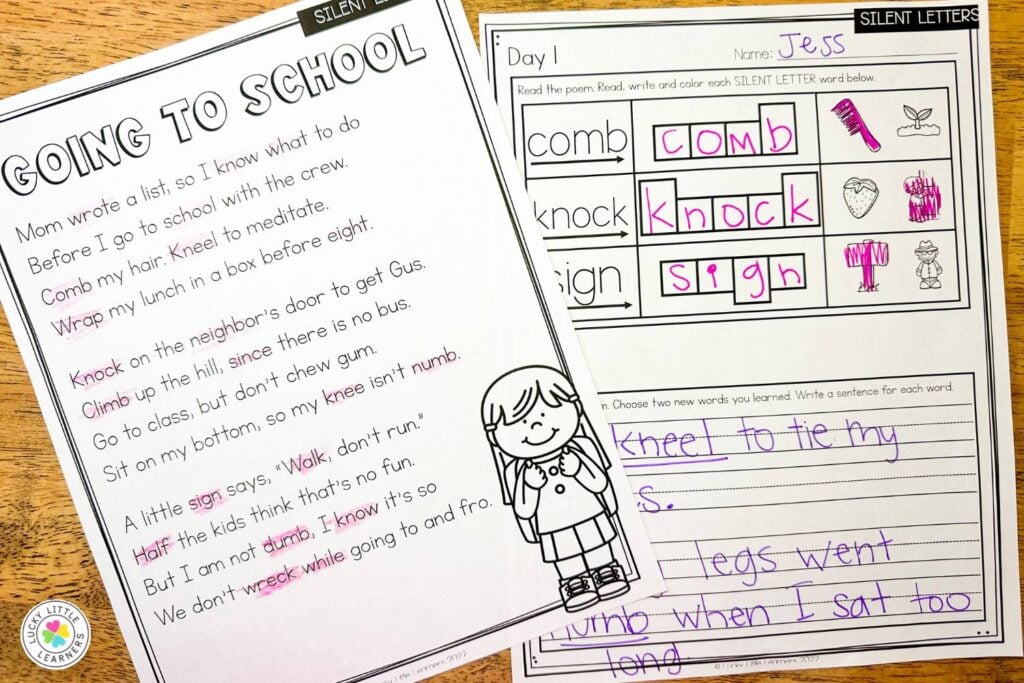 SILENT
GOING TO SCHOOL
Mom wrote a list, so I know what to do
Before I go to school with the crew.
Comb my hair. Kneel to meditate.
Wrap my lunch in a box before eight.
Knock on the neighbor's door to get Gus.
Climb up the hill, since there is no bus.
Go to class, but don't chew gum.
Sit on my bottom, so my knee isn't numb.
A little sign says, "Walk, don't run."
Half the kids think that's no fun.
But I am not dumb, I know it's so
We don't wreck while going to and fro.
LUCKY LITTLE LEARNERS
Learners 2022
SILENT LETTERS
Day 1
Name: Jess
Read the poem. Read, write and color each SILENT LETTER word below.
comb comb
knock knock
sign sign
Choose two new words you learned. Write a sentence for each word.
kneel to tie my
legs went
numb when I sat too
long
© Lucky Little Learners 2022